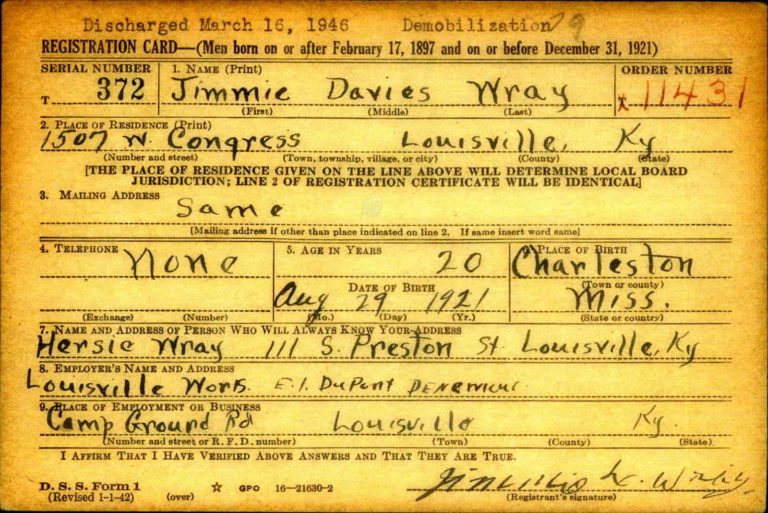 Discharged March 16, 1946 Demobilization
REGISTRATION CARD—(Men born on or after February 17, 1897 and on or before December 31, 1921)
SERIAL NUMBER 1. NAME (Print) ORDER NUMBER
T 372 Jimmie Davies Wray 11431
(First) (Middle) (Last)
2. PLACE OF RESIDENCE (Print)
1507 W. Congress Louisville, Ky
(Number and street) (Town, township, village, or city) (County) (State)
[THE PLACE OF RESIDENCE GIVEN ON THE LINE ABOVE WILL DETERMINE LOCAL BOARD
JURISDICTION; LINE 2 OF REGISTRATION CERTIFICATE WILL BE IDENTICAL]
3. MAILING ADDRESS
Same
[Mailing address if other than place indicated on line 2. If same insert word same]
4. TELEPHONE 5. AGE IN YEARS 6. PLACE OF BIRTH
None 20 Charleston
DATE OF BIRTH (Town or county)
Aug 29 1921 Miss.
(Exchange) (Number) (Mo.) (Day) (Yr.) (State or country)
7. NAME AND ADDRESS OF PERSON WHO WILL ALWAYS KNOW YOUR ADDRESS
Hersie Wray 111 S. Preston St Louisville, Ky
8. EMPLOYER'S NAME AND ADDRESS
Louisville Works. E. I. DuPont
9. PLACE OF EMPLOYMENT OR BUSINESS
Camp Ground Rd Louisville Ky.
(Number and street or R. F. D. number) (Town) (County) (State)
I AFFIRM THAT I HAVE VERIFIED ABOVE ANSWERS AND THAT THEY ARE TRUE.
D. S. S. Form 1
(Revised 1-1-42) (over) ☆ GPO 16—21630-2 (Registrant's signature)